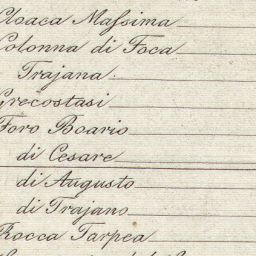 Cloaca Maſsima
Colonna di Foca
Trajana.
Grecostasi
Foro Boario
di Cesare
di Augusto
di Trajano
Rocca Tarpea